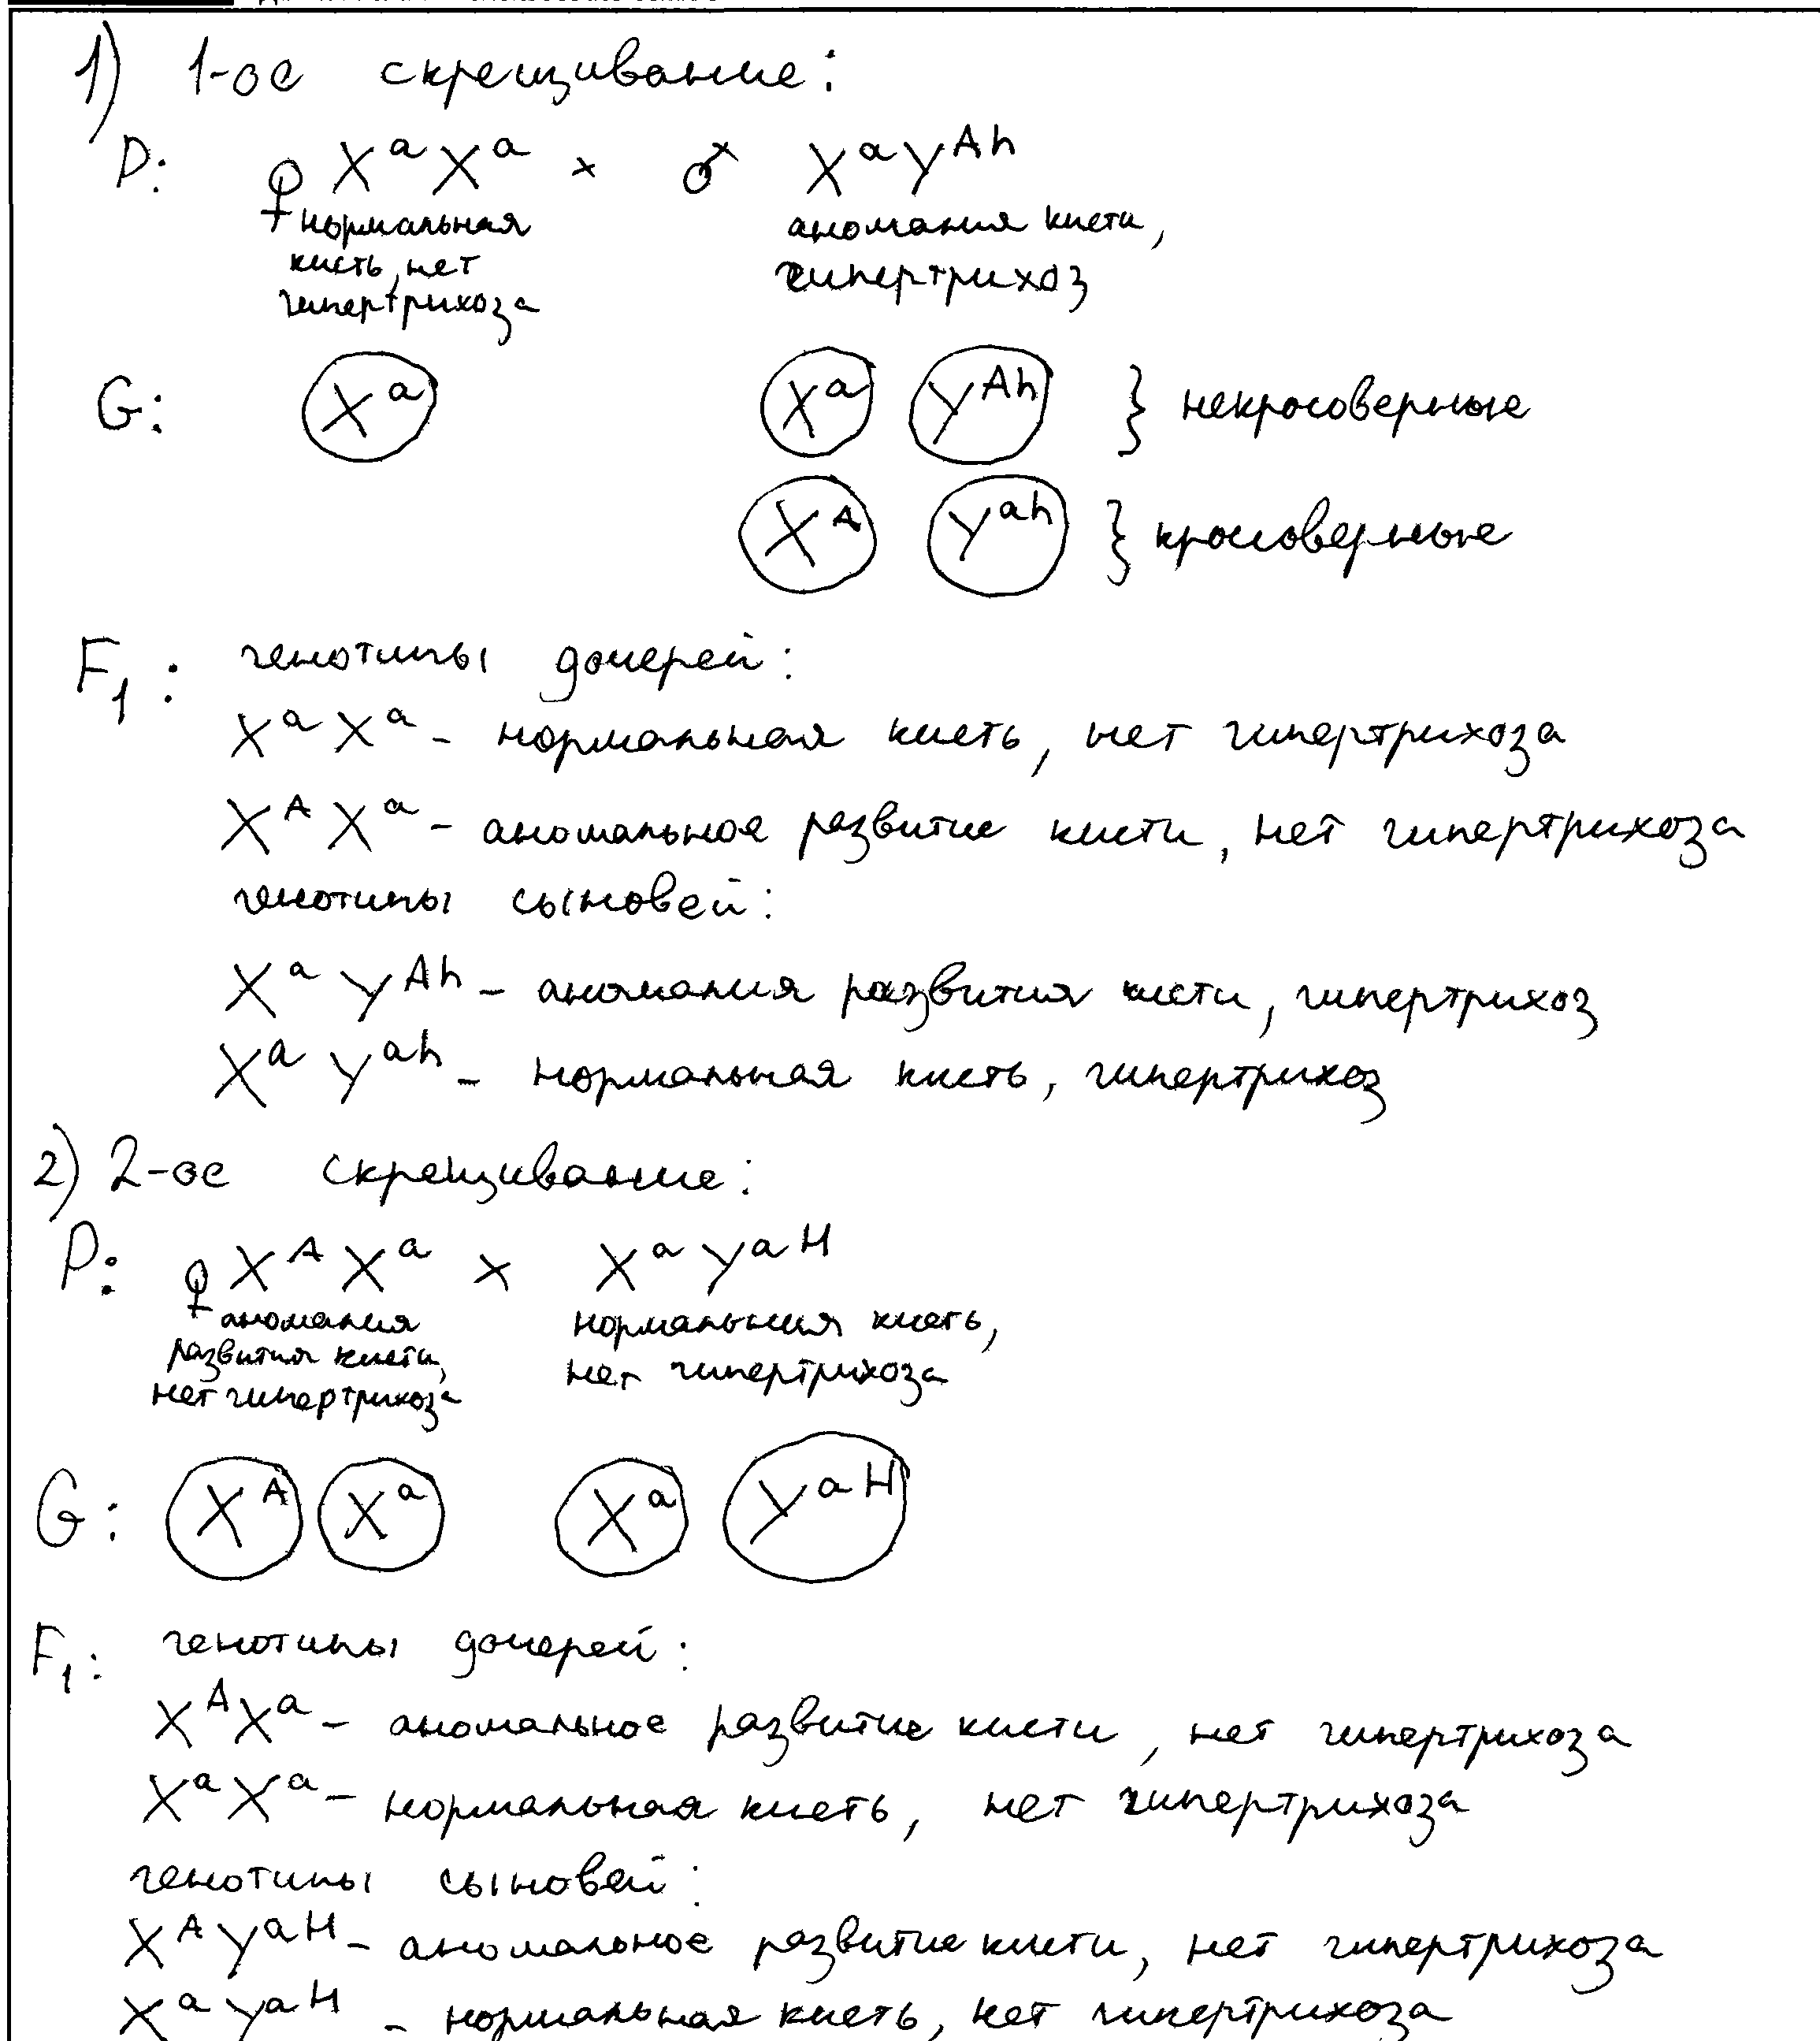 1) 1-ое скрещивание:
P: ♀ XᵃXᵃ × ♂ XᵃYᴬʰ
нормальная кисть, нет гипертрихоза
аномалия кисти, гипертрихоз
G: Xᵃ Xᵃ Yᴬʰ } некроссоверные
Xᴬ Yᵃʰ } кроссоверные
F₁: генотипы дочерей:
XᵃXᵃ - нормальная кисть, нет гипертрихоза
XᴬXᵃ - аномальное развитие кисти, нет гипертрихоза
генотипы сыновей:
XᵃYᴬʰ - аномалия развития кисти, гипертрихоз
XᵃYᵃʰ - нормальная кисть, гипертрихоз
2) 2-ое скрещивание:
P: ♀ XᴬXᵃ × XᵃYᵃᴴ
аномалия развития кисти, нет гипертрихоза
нормальная кисть, нет гипертрихоза
G: Xᴬ Xᵃ Xᵃ Yᵃᴴ
F₁: генотипы дочерей:
XᴬXᵃ - аномальное развитие кисти, нет гипертрихоза
XᵃXᵃ - нормальная кисть, нет гипертрихоза
генотипы сыновей:
XᴬYᵃᴴ - аномальное развитие кисти, нет гипертрихоза
XᵃYᵃᴴ - нормальная кисть, нет гипертрихоза